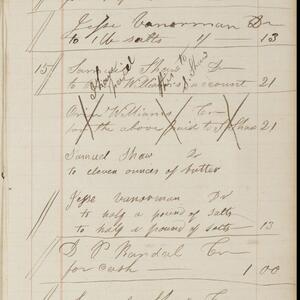 Jesse Vanorman Dr
to 1 lb salts 11 13
15 Samuel Shaw Dr
to Williams account 21
Orin Williams Cr
for the above paid to S Shaw 21
Samuel Shaw Dr
to eleven ounces of butter
Jesse Vanorman Dr
to half a pound of salts
to half a pound of salts 13
D P Randal Cr
for cash 1 00